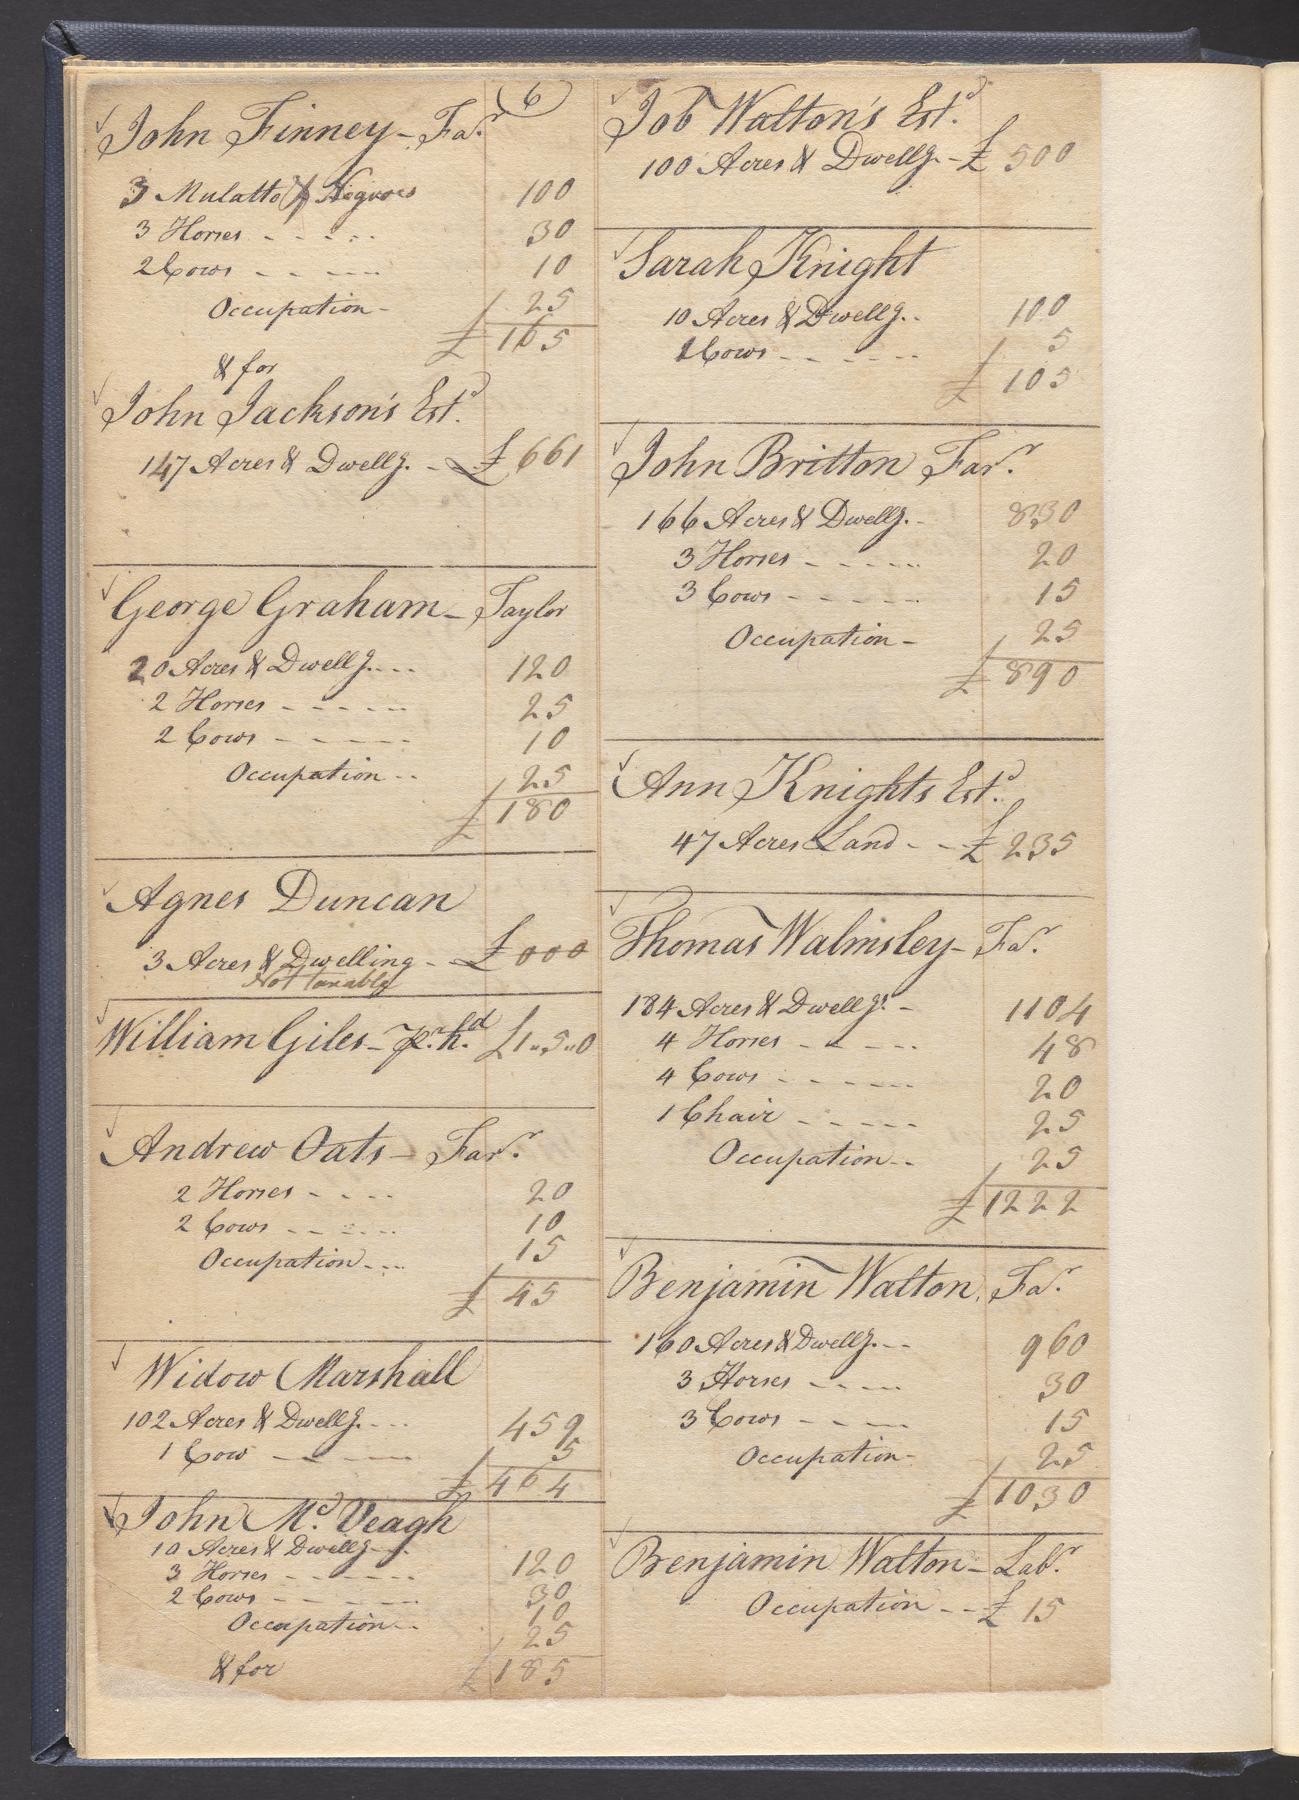 6
John Finney - Far.
3 Mulatto & Negroes 100
3 Horses - - - - - 30
2 Cows - - - - 10
Occupation - 25
£ 165
& for
John Jackson's Estd.
147 Acres & Dwellg. - £ 661
George Graham - Taylor
20 Acres & Dwellg. - - - 120
2 Horses - - - - - - 25
2 Cows - - - - - 10
Occupation - - 25
£ 180
Agnes Duncan
3 Acres & Dwelling - £ 000
Not taxable
William Giles - hd. £1..5..0
Andrew Oats - Far.
2 Horses - - - - 20
2 Cows - - - - - 10
Occupation - - - 15
£ 45
Widow Marshall
102 Acres & Dwellg. - - - 459
1 Cow - - - - 5
£ 464
John Mc. Veagh
10 Acres & Dwellg - - 120
3 Horses - - - - - - 30
2 Cows - - - - - - 10
Occupation - - 25
& for £ 185
Job Walton's Estd.
100 Acres & Dwellg. - £ 500
Sarah Knight
10 Acres & Dwellg. - 100
1 Cows - - - - - - 5
£ 105
John Britton Far.
166 Acres & Dwellg. - 830
3 Horses - - - - - 20
3 Cows - - - - - 15
Occupation - 25
£ 890
Ann Knights Estd.
47 Acres Land - - £ 235
Thomas Walmsley - Far.
184 Acres & Dwellg. - 1104
4 Horses - - - - - 48
4 Cows - - - - - - 20
1 Chair - - - - - 25
Occupation - - 25
£ 1222
Benjamin Walton. Far.
160 Acres & Dwellg. - - 960
3 Horses - - - - 30
3 Cows - - - - - 15
Occupation - 25
£ 1030
Benjamin Walton - Labr.
Occupation - - £ 15